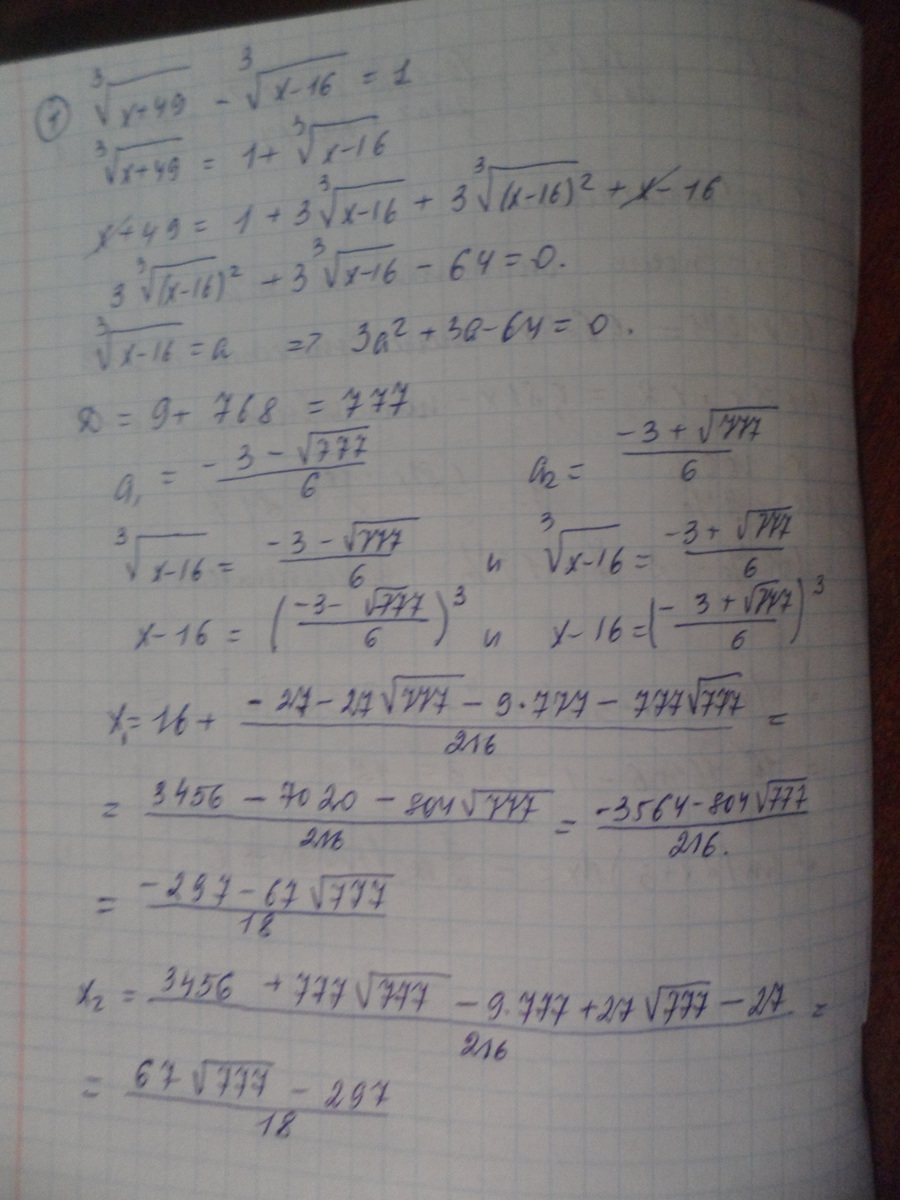 ① ∛(x+49) - ∛(x-16) = 1
∛(x+49) = 1 + ∛(x-16)
x+49 = 1 + 3∛(x-16) + 3∛(x-16)² + x - 16
3∛(x-16)² + 3∛(x-16) - 64 = 0.
∛(x-16) = a => 3a² + 3a - 64 = 0.
D = 9 + 768 = 777
a₁ = (-3 - √777)/6 a₂ = (-3 + √777)/6
∛(x-16) = (-3 - √777)/6 и ∛(x-16) = (-3 + √777)/6
x - 16 = ((-3 - √777)/6)³ и x - 16 = ((-3 + √777)/6)³
x₁ = 16 + (-27 - 27√777 - 9·777 - 777√777)/216 =
= (3456 - 7020 - 804√777)/216 = (-3564 - 804√777)/216.
= (-297 - 67√777)/18
x₂ = (3456 + 777√777 - 9·777 + 27√777 - 27)/216 =
= (67√777 - 297)/18